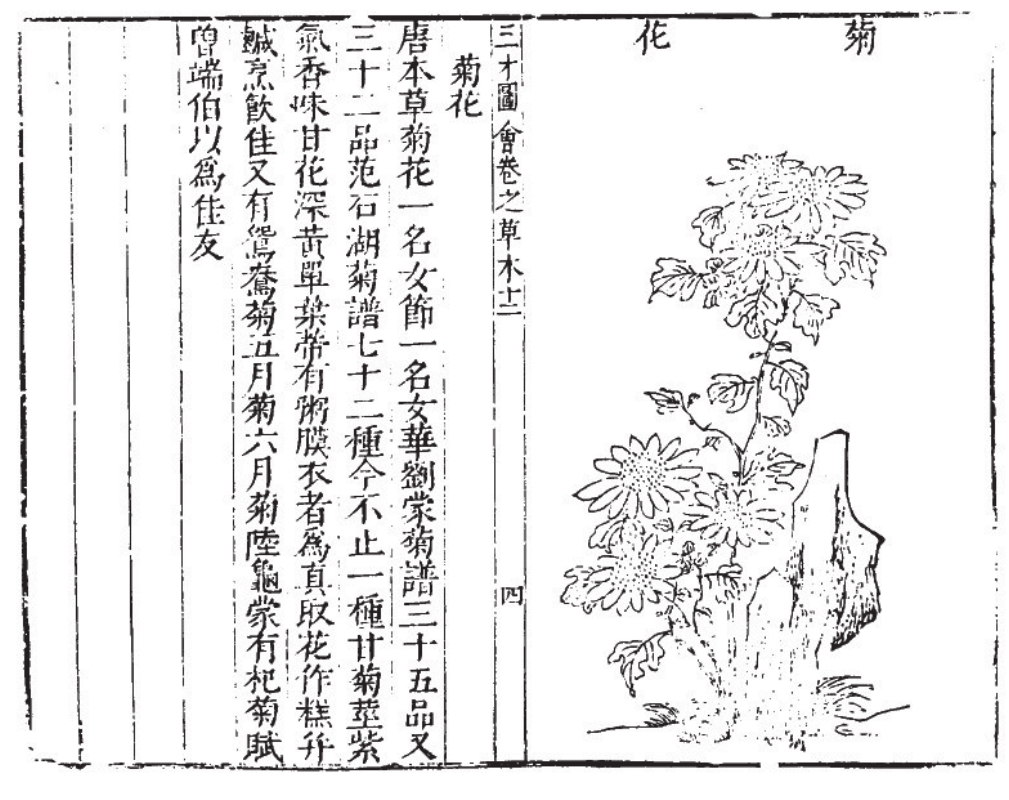 菊花
三才圖會卷之草木十二 四
菊花
唐本草菊花一名女節一名女華劉蒙菊譜三十五品又
三十二品范石湖菊譜七十二種今不止一種甘菊莖紫
氣香味甘花深黃單葉蒂有粥膜衣者爲真取花作糕并
鹹烹飲佳又有鴛鴦菊五月菊六月菊陸龜蒙有杞菊賦
曾端伯以爲佳友